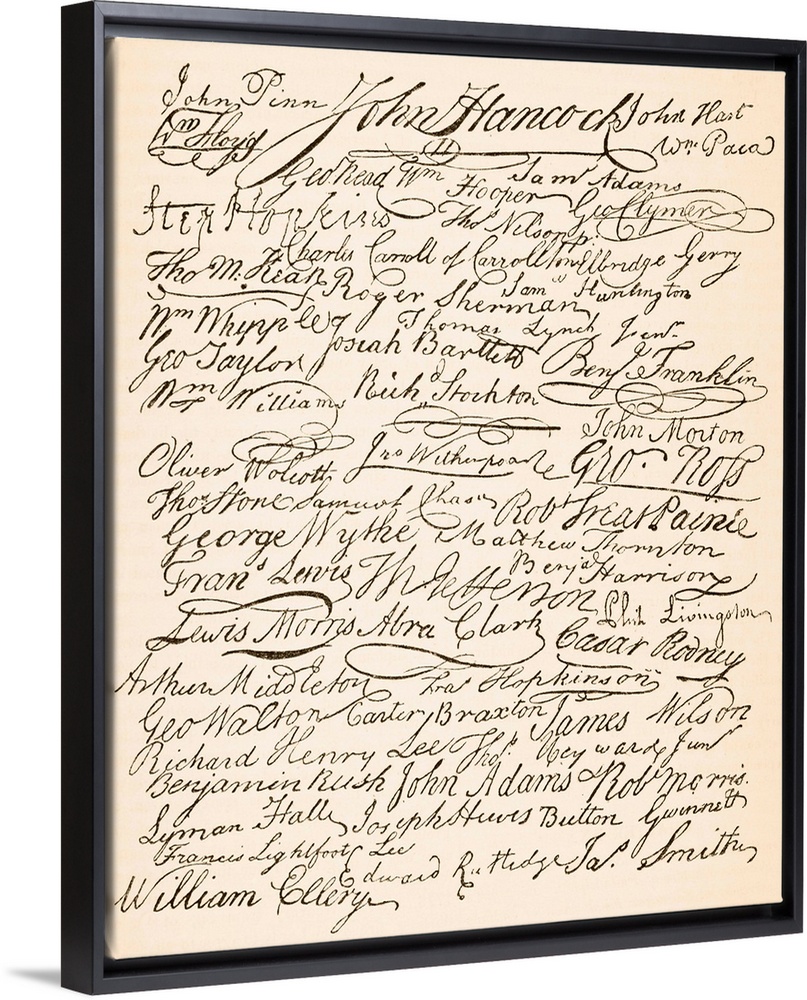 John Pinn John Hancock John Hart
Wm Floyd Wm. Paca
Geo Read Wm Hooper Sam Adams
Step Hopkins Thos Nelson jr. Geo Clymer
Charles Carroll of Carrollton Elbridge Gerry
Tho M. Kean Roger Sherman Sam Huntington
Wm Whipple Josiah Bartlett Thomas Lynch Junr
Geo Taylor Benj Franklin
Wm Williams Richd Stockton
John Morton
Oliver Wolcott Jno Witherspoon Geo. Ross
Thos Stone Samuel Chase Robt Treat Paine
George Wythe Matthew Thornton
Frans Lewis Th Jefferson Benja Harrison
Lewis Morris Abra Clark Phil. Livingston
Casar Rodney
Arthur Middleton Fras Hopkinson
Geo Walton Carter Braxton James Wilson
Richard Henry Lee Thos. Heyward Junr
Benjamin Rush John Adams Robt Morris.
Lyman Hall Joseph Hewes Button Gwinnett
Francis Lightfoot Lee
Edward Rutledge Jas. Smith
William Ellery